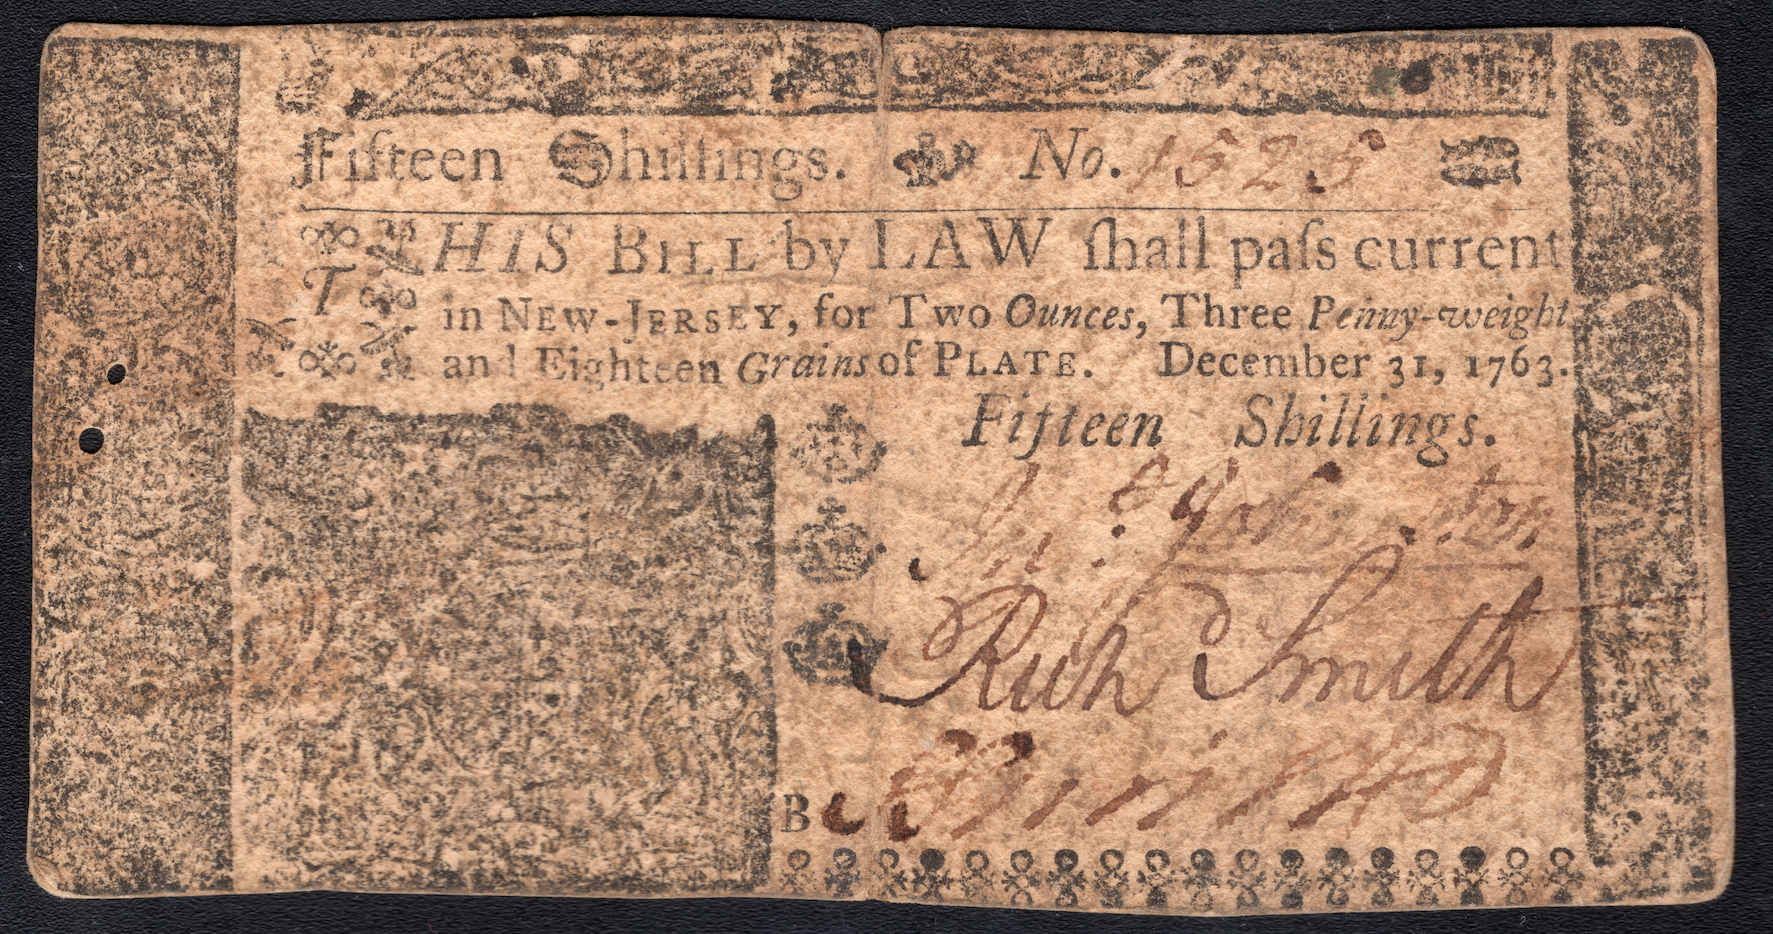 Fifteen Shillings. No. 1525
THIS BILL by LAW ſhall paſs current
in NEW-JERSEY, for Two Ounces, Three Penny-weight
and Eighteen Grains of PLATE. December 31, 1763.
Fifteen Shillings.
Richd Smith
B